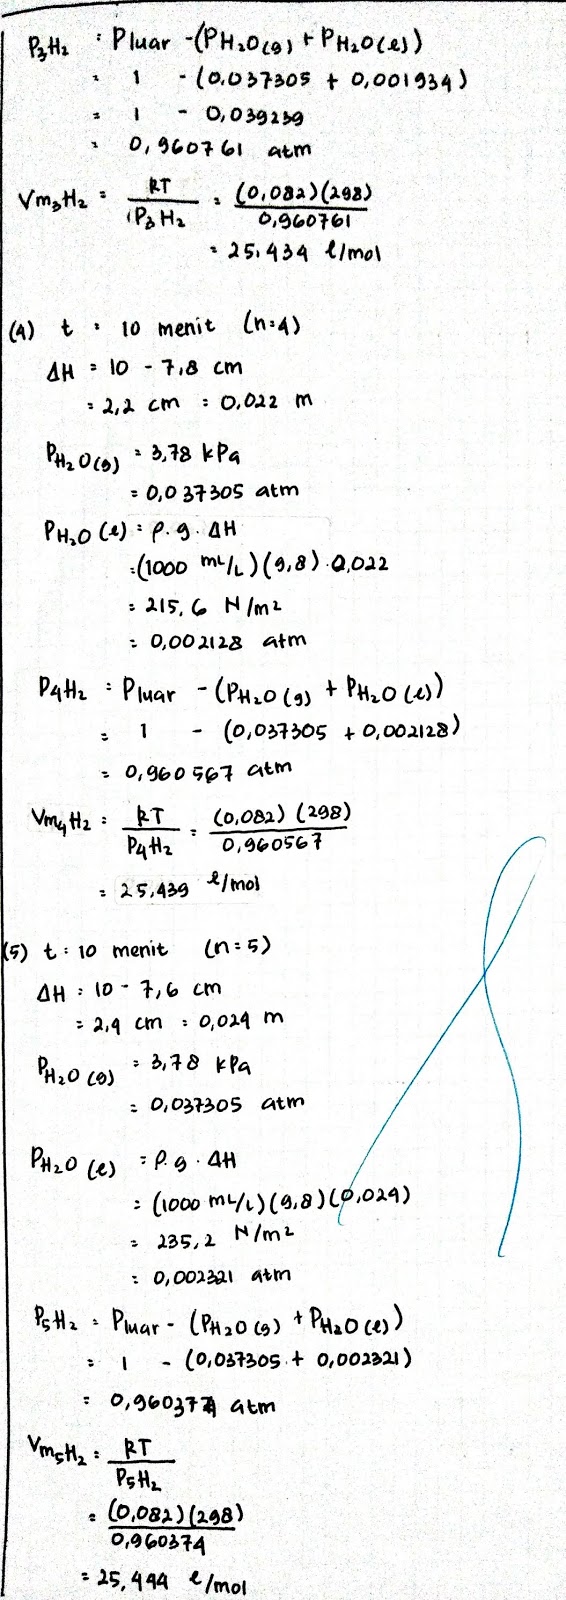 P₃H₂ = Pluar - (PH₂O(g) + PH₂O(l))
= 1 - (0.037305 + 0,001934)
= 1 - 0,039239
= 0,960761 atm
Vm₃H₂ = RT / P₃H₂ = (0,082)(298) / 0,960761
= 25,434 l/mol
(4) t = 10 menit (n=4)
ΔH = 10 - 7,8 cm
= 2,2 cm = 0,022 m
PH₂O(g) = 3,78 kPa
= 0,037305 atm
PH₂O (l) = ρ. g. ΔH
= (1000 mL/L)(9,8) . 0,022
= 215,6 N/m²
= 0,002128 atm
P₄H₂ = Pluar - (PH₂O (g) + PH₂O (l))
= 1 - (0,037305 + 0,002128)
= 0,960567 atm
Vm₄H₂ = RT / P₄H₂ = (0,082) (298) / 0,960567
= 25,439 l/mol
(5) t = 10 menit (n=5)
ΔH = 10 - 7,6 cm
= 2,4 cm = 0,024 m
PH₂O (g) = 3,78 kPa
= 0,037305 atm
PH₂O (l) = ρ. g. ΔH
= (1000 mL/L)(9,8)(0,024)
= 235,2 N/m²
= 0,002321 atm
P₅H₂ = Pluar - (PH₂O (g) + PH₂O (l))
= 1 - (0,037305 + 0,002321)
= 0,960374 atm
Vm₅H₂ = RT / P₅H₂
= (0,082)(298) / 0,960374
= 25,444 l/mol